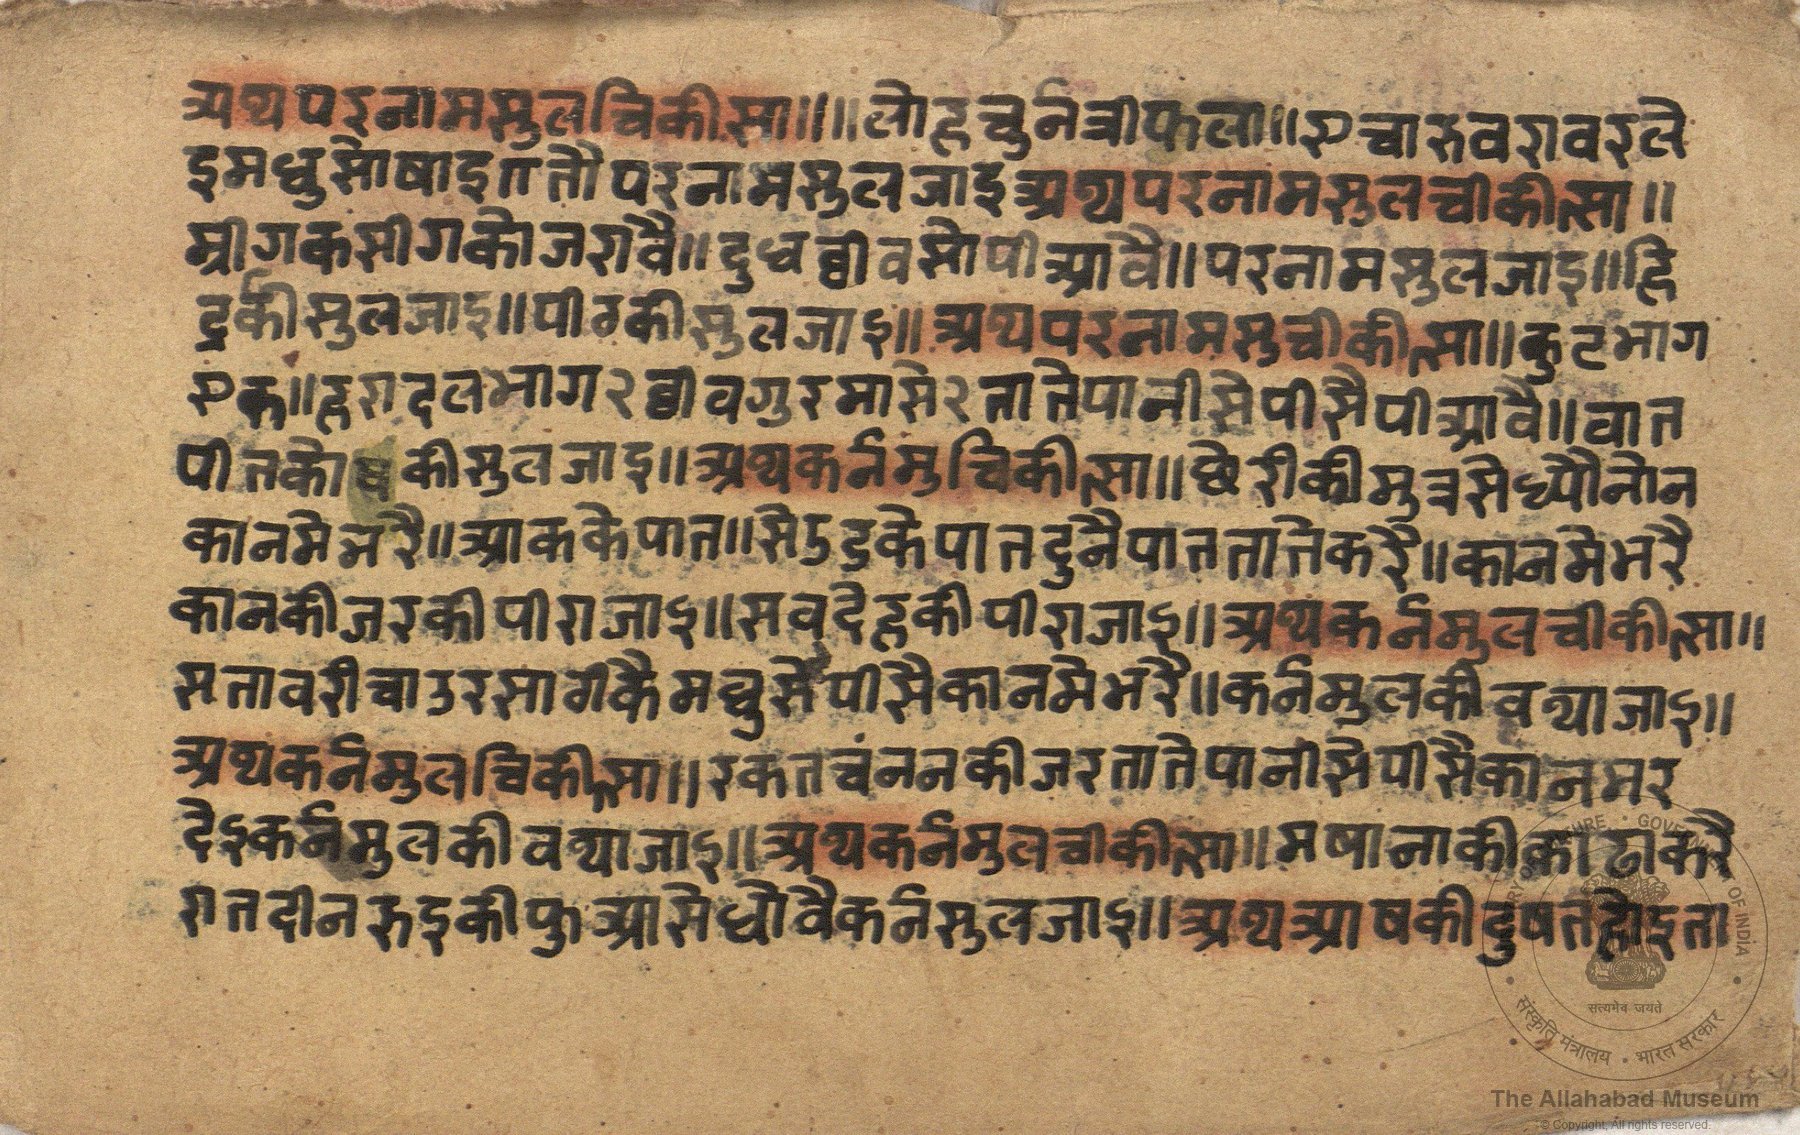 अथपरनामसुलचिकीसा॥॥लोहचुर्नत्रीफला॥एचारुवरावरले
इमधुसोषाइगतौपरनामसुलजाइअथपरनामसुलचीकीत्सा॥
म्रीगकसीगकोजरावै॥दुधघीवसोपीआवै॥परनामसुलजाइ॥हि
द्रकीसुलजाइ॥पीठकीसुलजाइ॥अथपरनामसुचीकीत्सा॥कुटभाग
एक॥हरादलभाग२घीवगुरमासे२तातेपानीसेपीसैपीआवै॥वात
पीतको कीसुलजाइ॥अथकर्नमुचिकीत्सा॥छेरीकीमुत्रसेध्यौनोन
कानमेभरै॥आककेपात॥सेउडकेपातदुनैपाततातेकरै॥कानमेभरै
कानकीजरकीपीराजाइ॥सवदेहकीपीराजाइ॥अथकर्नमुलचीकीत्सा॥
सतावरीचाउरसागीकैमधुसेपीसैकानमेभरै॥कर्नमुलकीवथाजाइ॥
अथकर्नमुलचिकीत्सा॥रकतचंननकीजरतातेपानीसेपीसैकानमर
देइकर्नमुलकीवथाजाइ॥अथकर्नमुलचीकीत्सा॥मषानाकीकाढाकरै
रातदीनरुइकीफुआसेधोवैकर्नसुलजाइ॥अथआषकीदुषतहोइता
संस्कृति मंत्रालय • भारत सरकार
सत्यमेव जयते
The Allahabad Museum
© Copyright, All rights reserved.